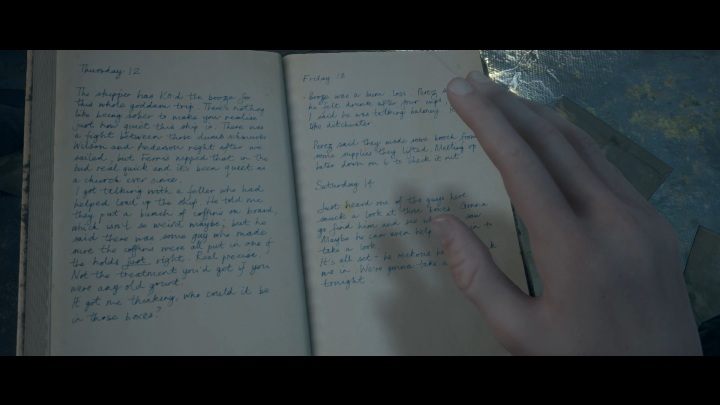 Thursday 12
The skipper has KO'd the booze for
this whole goddam trip. There's nothing
like being sober to make you realise
just how quiet this ship is. There was
a fight between those dumb schmucks
Wilson and Anderson right after we
sailed, but Ferris nipped that in the
bud real quick and it's been quiet as
a church ever since.
I got talking with a feller who had
helped load up the ship. He told me
they put a bunch of coffins on board,
which isn't so weird maybe, but he
said there was some guy who made
sure the coffins were all put in one of
the holds just right. Real precise.
Not the treatment you'd get if you
were any old grunt.
It got me thinking, who could it be
in those boxes?
Friday 13
Booze was a bum loss. Perez
he felt drunk after four cups.
I said he was talking baloney.
like ditchwater
Perez said they made some hooch from
some supplies they lifted. Meeting up
later down on to check it out
Saturday 14
Just heard one of the guys here
snuck a look at those boxes. Gonna
go find him and see what saw
Maybe he can even help in to
take a look.
It's all set - he reckons he
me in. We're gonna take a
tonight